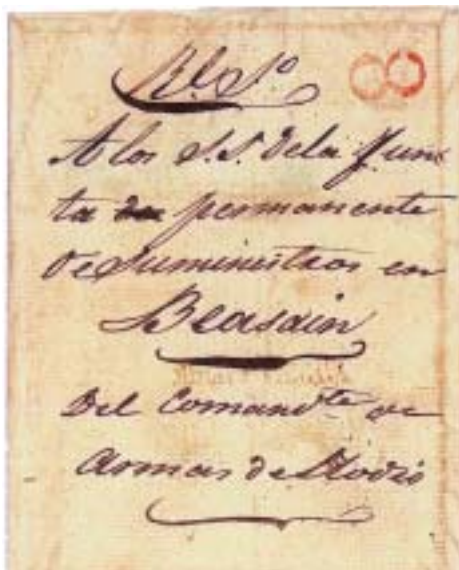 Rl. So
A los S.S. dela Jun
ta permanente
de Suministros en
Beasain
Del Comandte de
Armas de Llodio